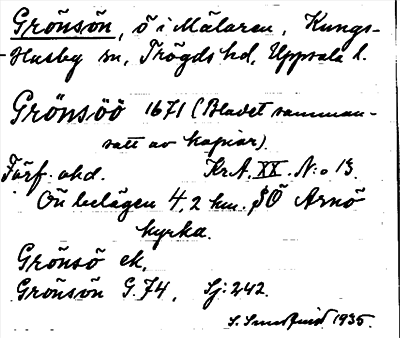 Grönsön, ö i Mälaren, Kungs-
Husby sn, Trögds hd, Uppsala l.
Grönsöö 1671 (Bladet samman-
satt av kopior).
Förf. okd. Kr.A. XX. N:o 13.
Ön belägen 4,2 km. SÖ Arnö
kyrka.
Grönsö ek.
Grönsön G. 74, Sj: 242.
1935.